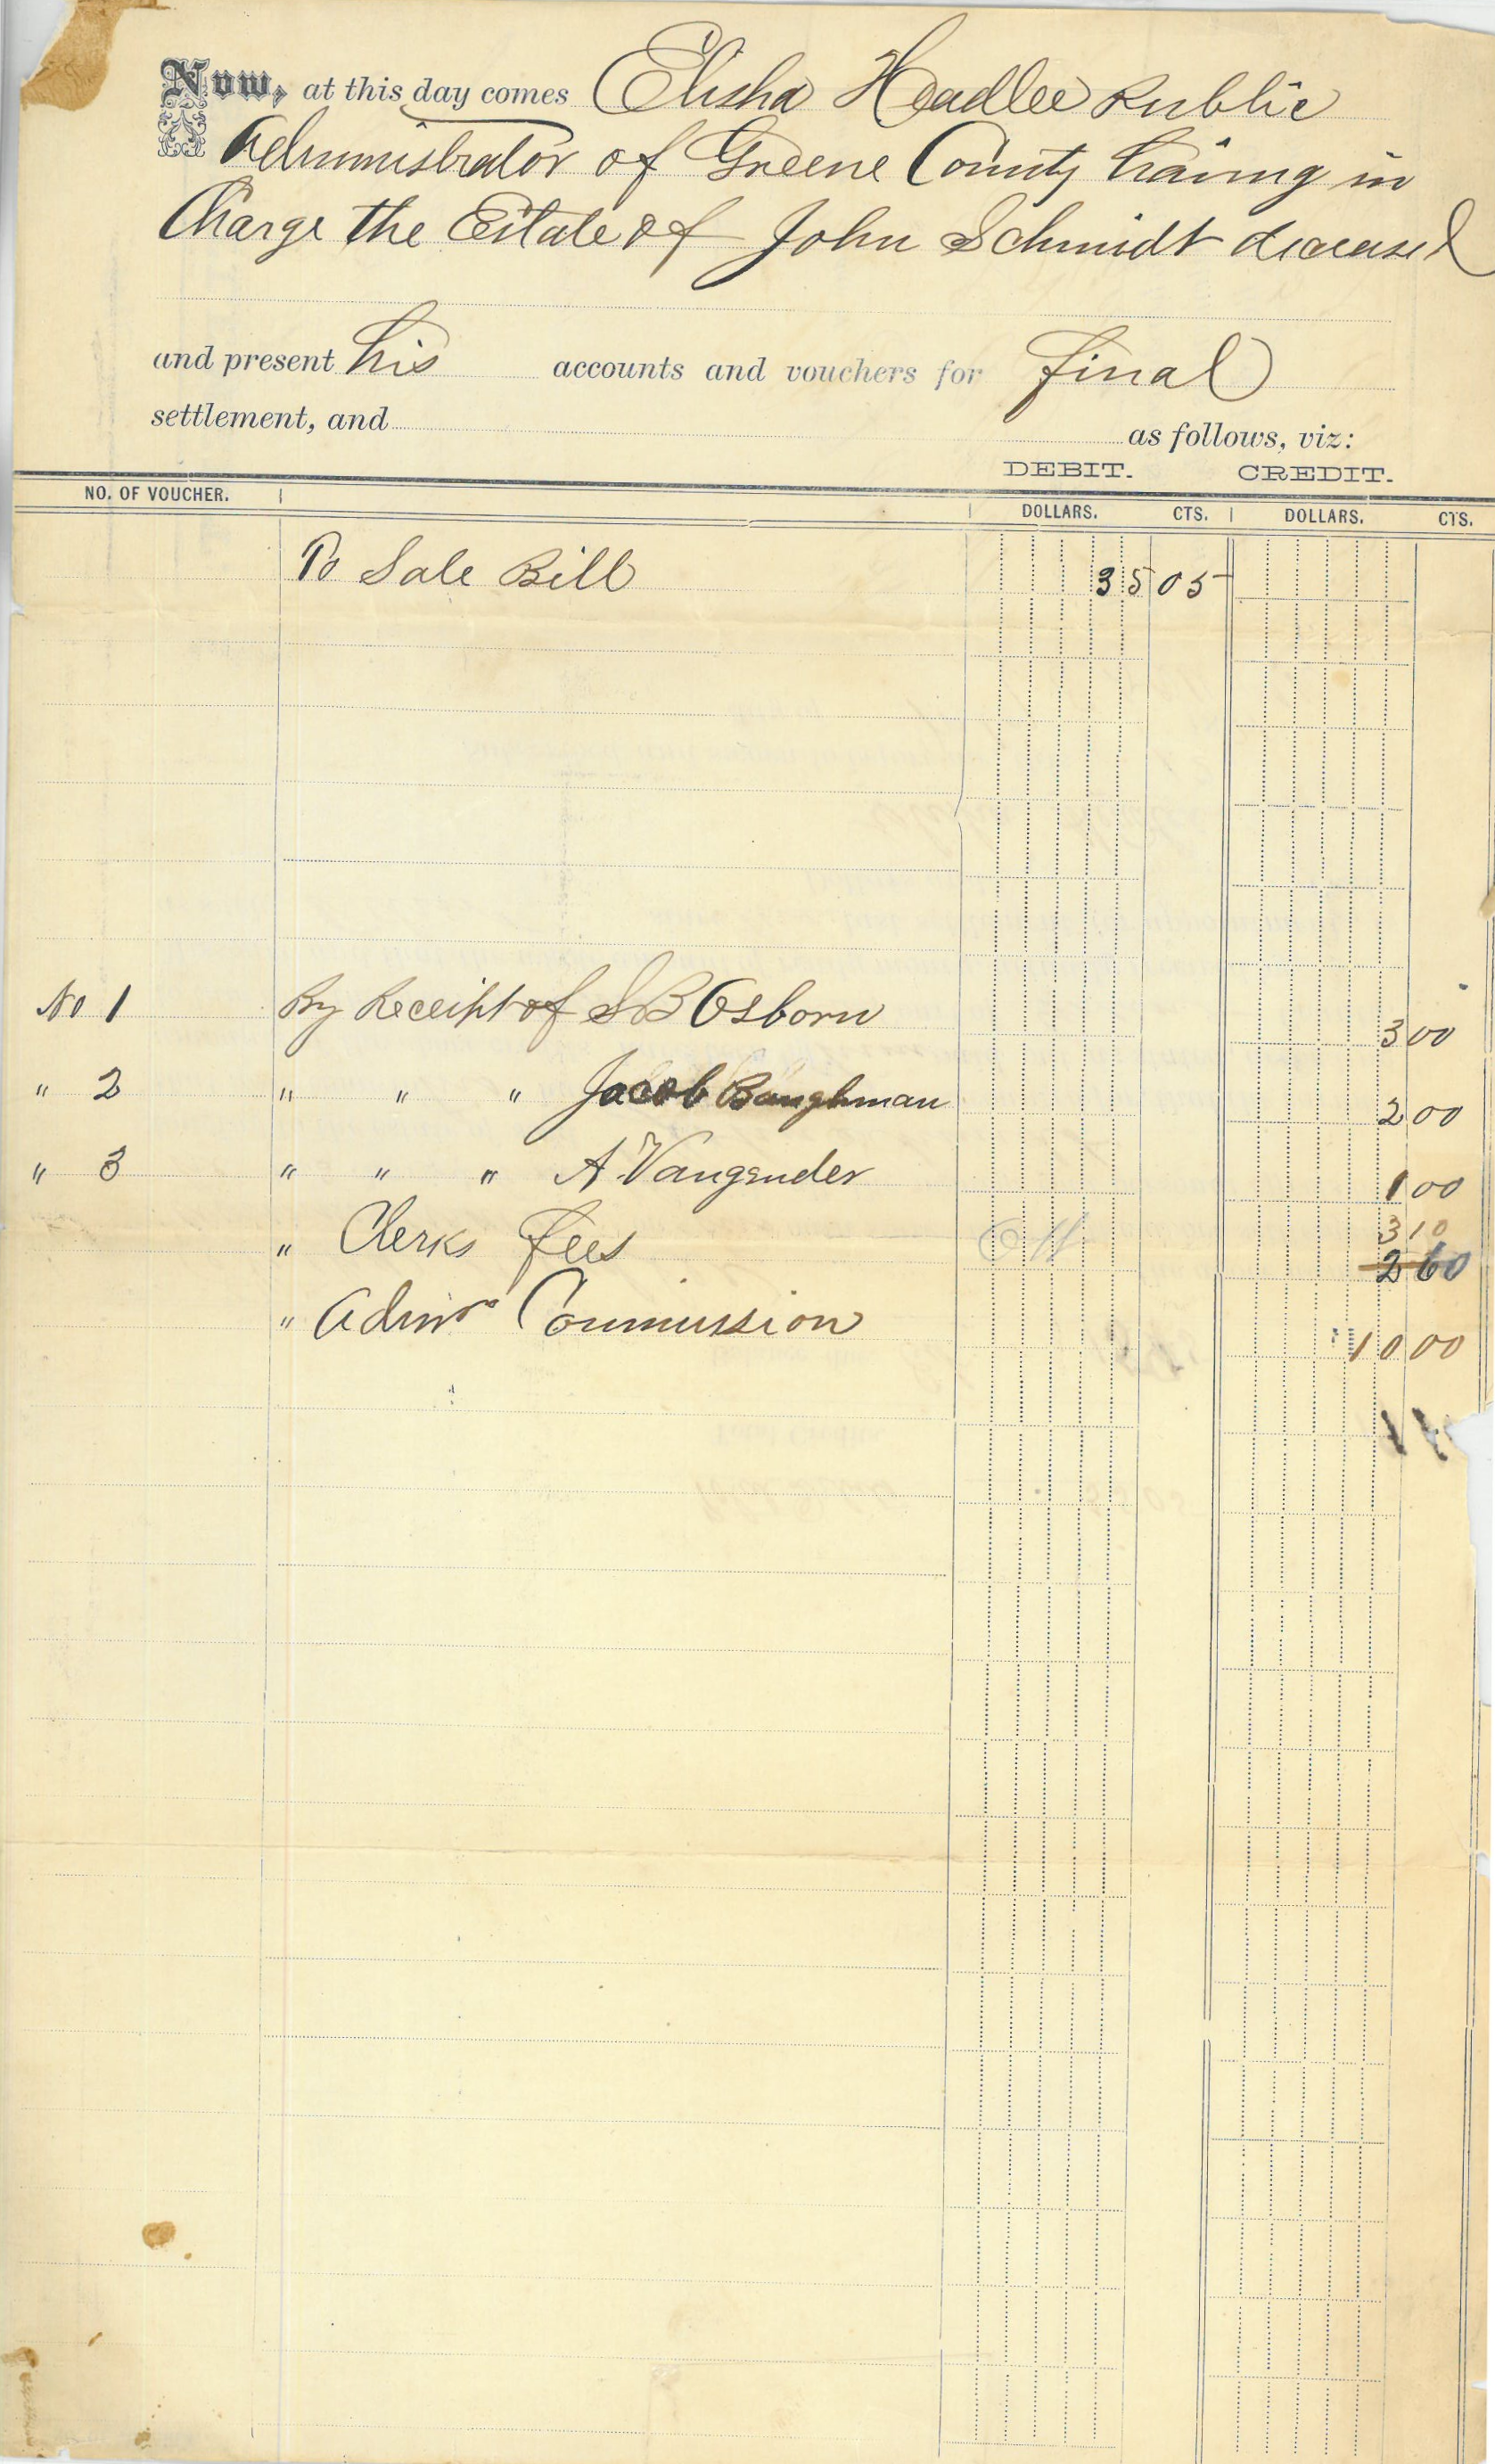 Now, at this day comes Elisha Headlee Public
Administrator of Greene County having in
Charge the Estate of John Schmidt deceased
and present his accounts and vouchers for final
settlement, and as follows, viz:
DEBIT. CREDIT.
NO. OF VOUCHER. DOLLARS. CTS. DOLLARS. CTS.
To Sale Bill 35 05
No 1 By Receipt of S B Osborn 3 00
" 2 " " " Jacob Baughman 2 00
" 3 " " " A. Vangender 1 00
" Clerks fees 3 10
2 60
" Admrs Commission 10 00